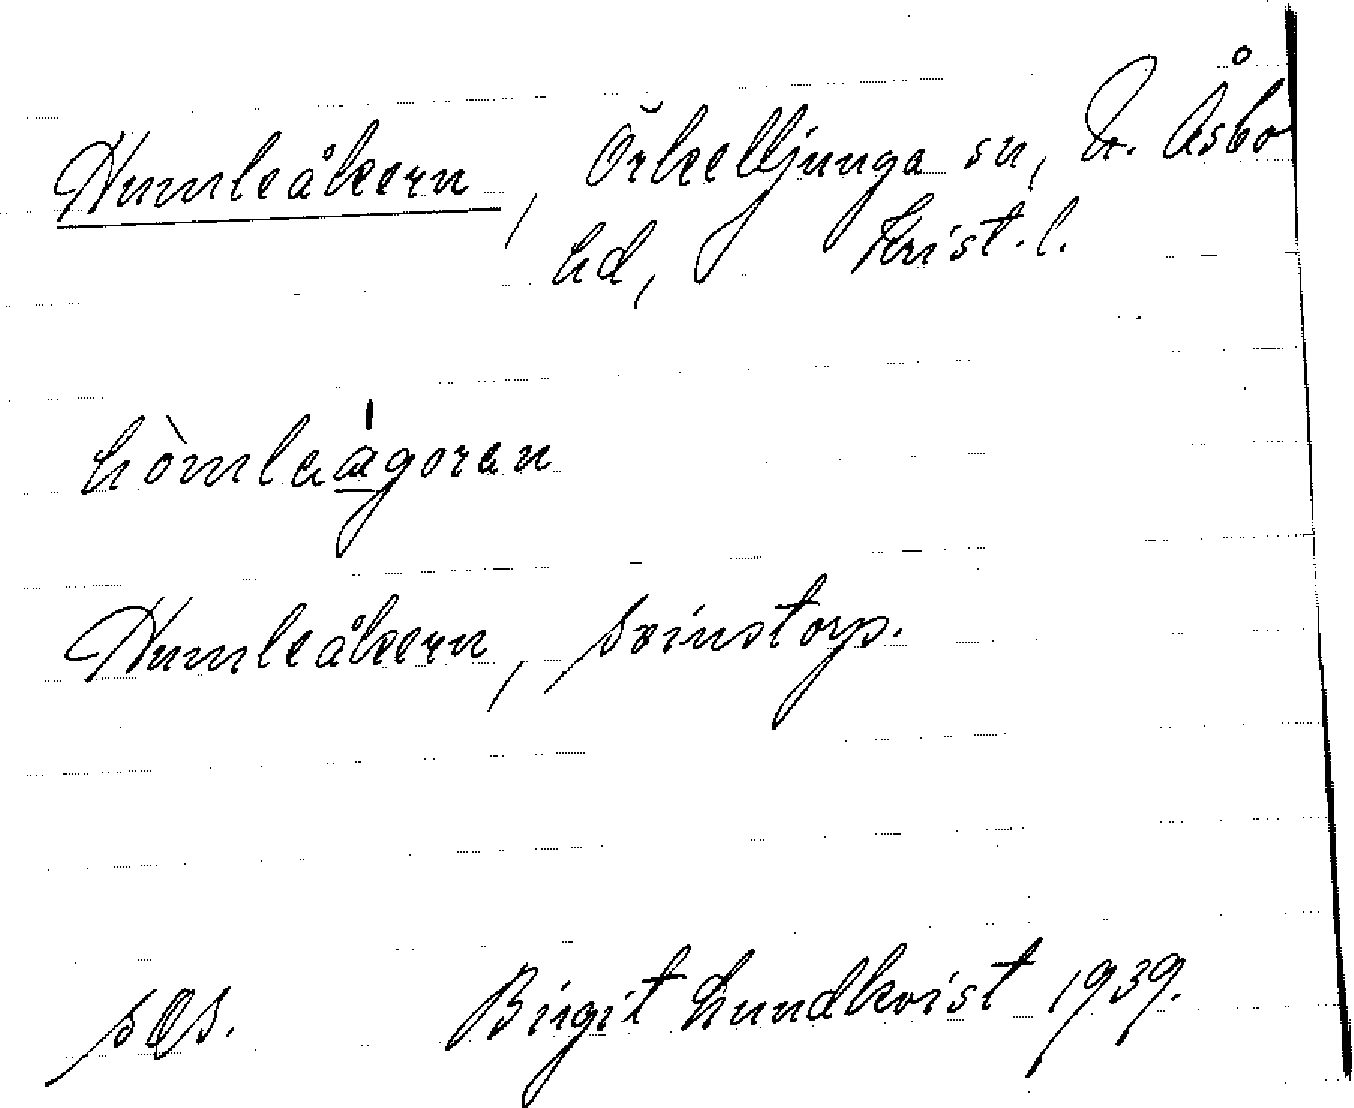 Humleåkern, Örkelljunga sn, N. Åsbo
hd, Krist. l.
hòmleágoren
Humleåkern, Svinstorp.
Birgit Lundkvist 1939.